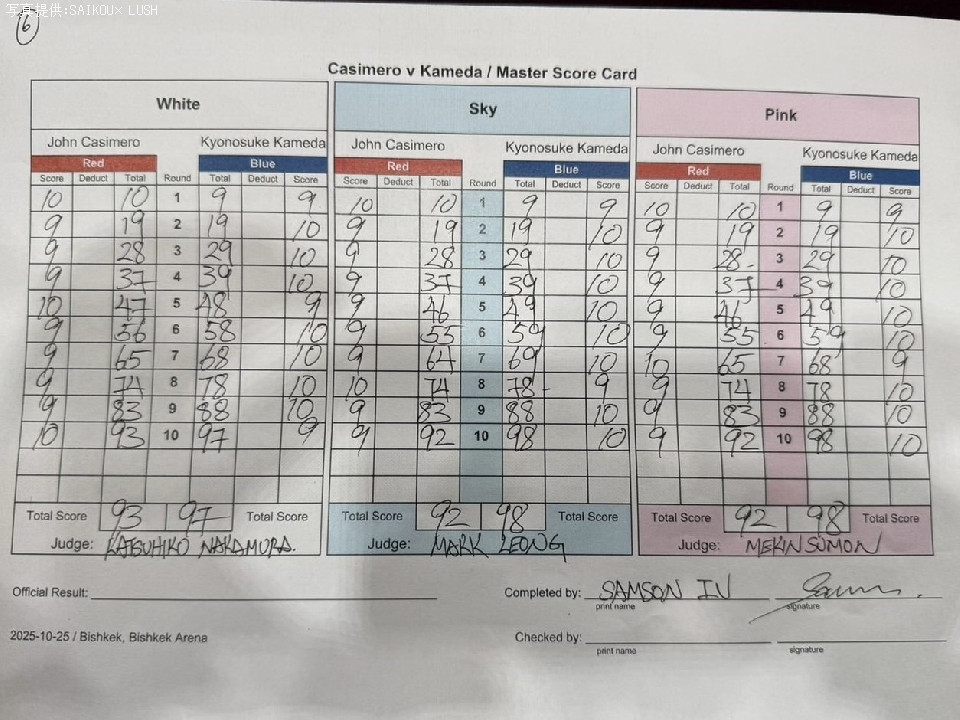 写真提供:SAIKOU× LUSH
6
Casimero v Kameda / Master Score Card
White Sky Pink
John Casimero Kyonosuke Kameda John Casimero Kyonosuke Kameda John Casimero Kyonosuke Kameda
Red Blue Red Blue Red Blue
Score Deduct Total Round Total Deduct Score Score Deduct Total Round Total Deduct Score Score Deduct Total Round Total Deduct Score
10 10 1 9 9 10 10 1 9 9 10 10 1 9 9
9 19 2 19 10 9 19 2 19 10 9 19 2 19 10
9 28 3 29 10 9 28 3 29 10 9 28 3 29 10
9 37 4 39 10 9 37 4 39 10 9 37 4 39 10
10 47 5 48 9 9 46 5 49 10 9 46 5 49 10
9 56 6 58 10 9 55 6 59 10 9 55 6 59 10
9 65 7 68 10 9 64 7 69 10 10 65 7 68 9
9 74 8 78 10 10 74 8 78 9 9 74 8 78 10
9 83 9 88 10 9 83 9 88 10 9 83 9 88 10
10 93 10 97 9 9 92 10 98 10 9 92 10 98 10
Total Score 93 97 Total Score Total Score 92 98 Total Score Total Score 92 98 Total Score
Judge: KATSUHIKO NAKAMURA. Judge: MARK LEONG Judge: MEKIN SUMON
Official Result: Completed by: SAMSON IV
print name signature
2025-10-25 / Bishkek, Bishkek Arena Checked by:
print name signature